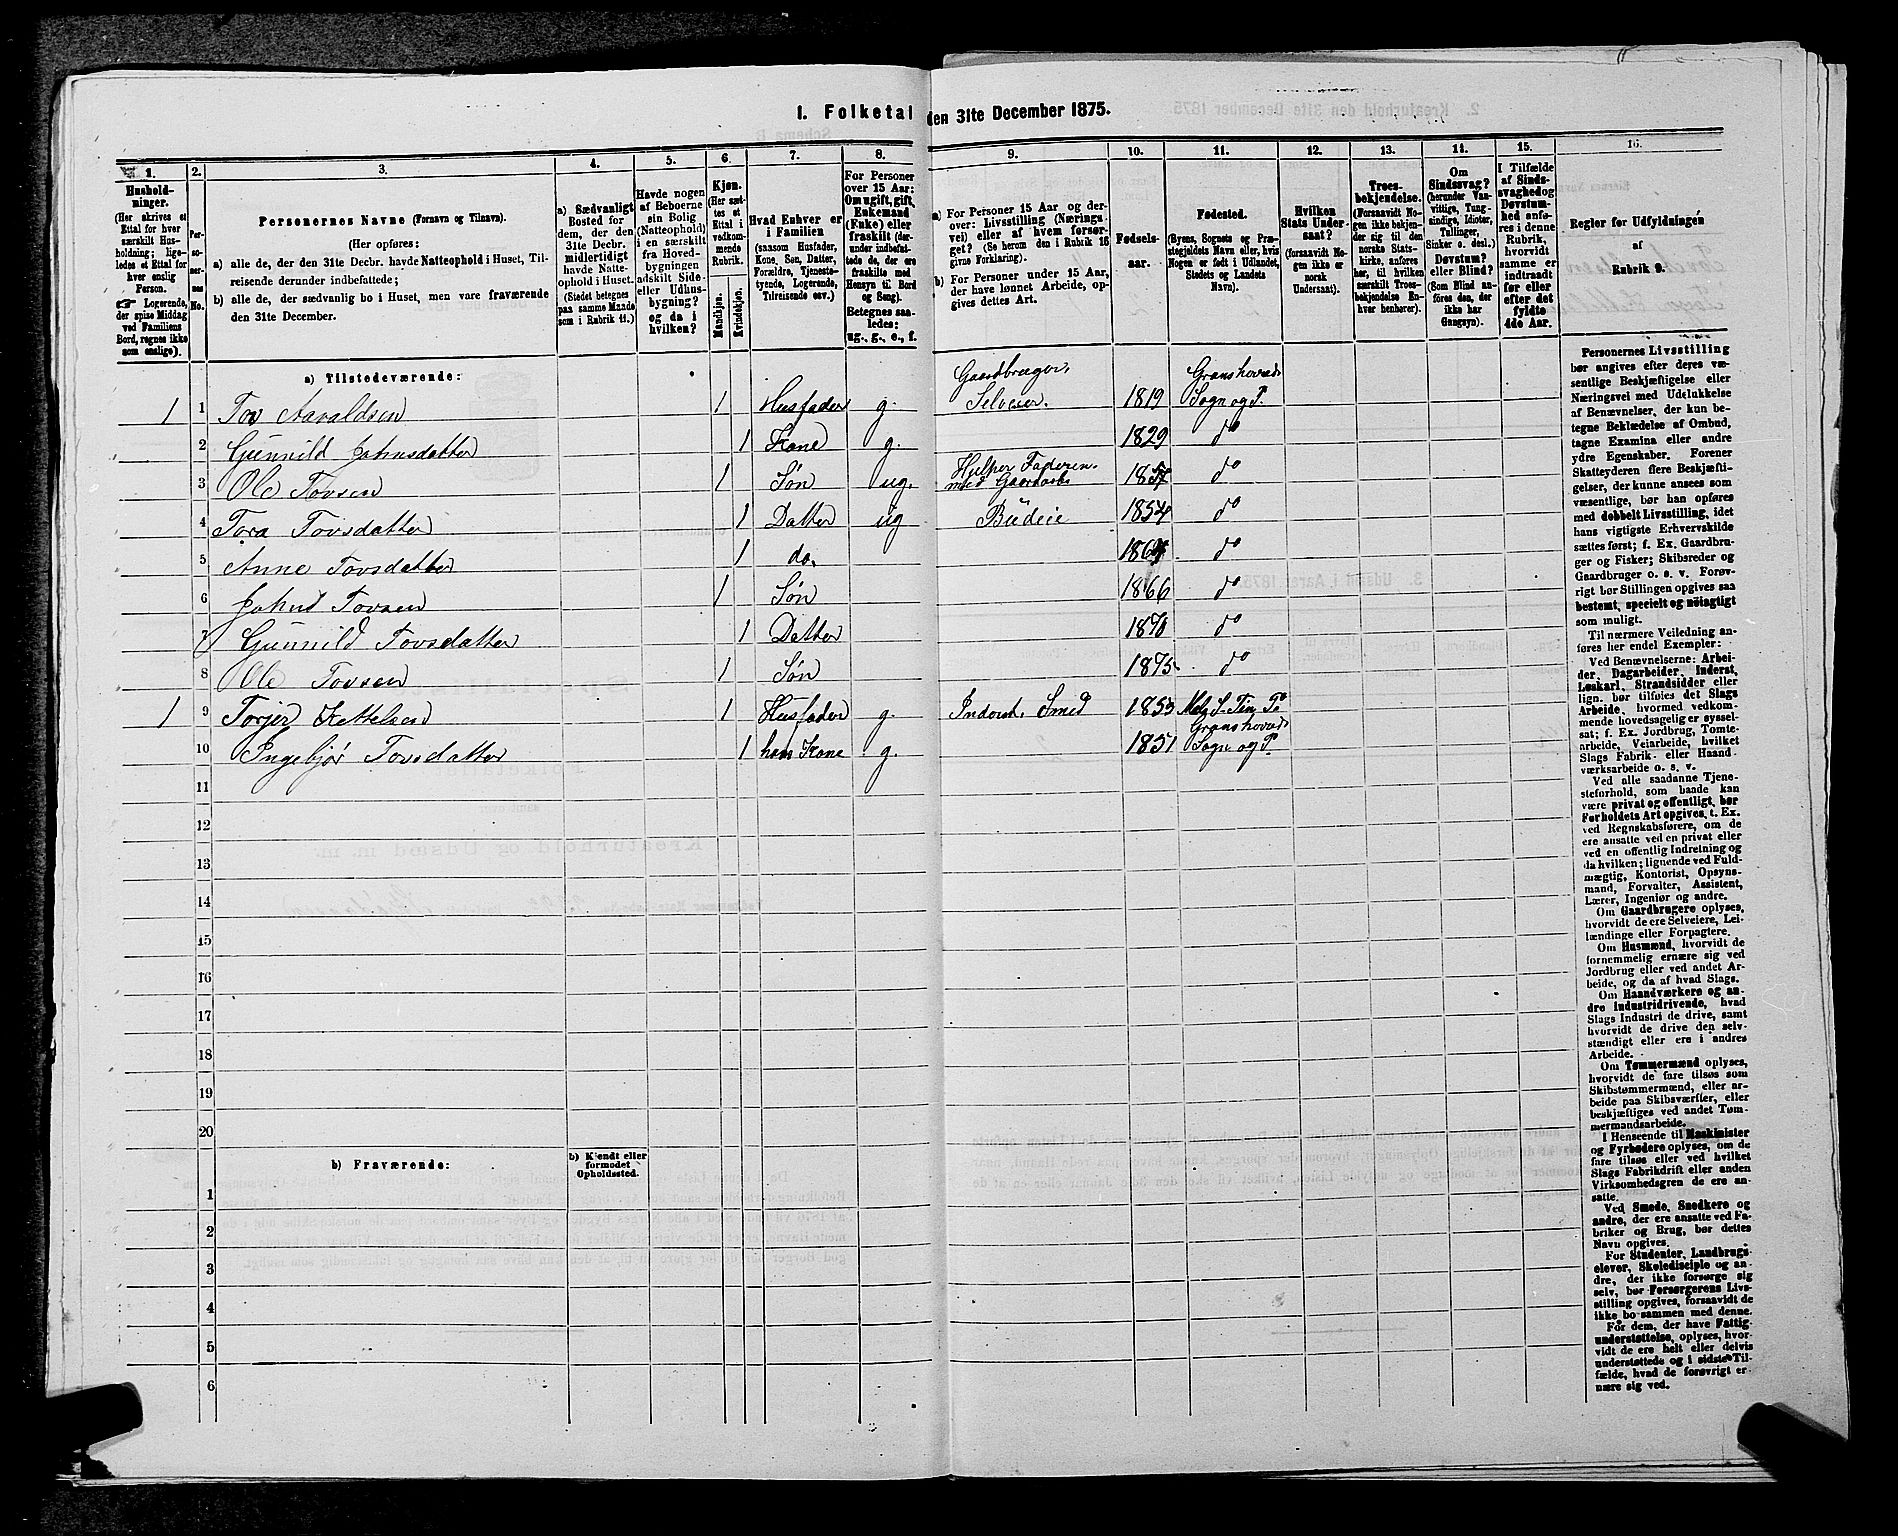 1. Folketal den 31te December 1875.
1. 2. 3. 4. 5. 6. 7. 8. 9. 10. 11. 12. 13. 14. 15. 16.
Hushold-
ninger.
(Her skrives et
Ettal for hver
særskilt Hus-
holdning; lige-
ledes et Ettal for
hver enslig
Person.
☛ Logerende,
der spise Middag
ved Familiens
Bord, regnes ikke
som enslige).
Per-
so-
ner-
nes
No.
Personernes Navne (Fornavn og Tilnavn).
(Her opføres:
a) alle de, der den 31te Decbr. havde Natteophold i Huset, Til-
reisende derunder indbefattede;
b) alle de, der sædvanlig bo i Huset, men vare fraværende
den 31te December.
a) Sædvanligt
Bosted for
dem, der den
31te Decbr.
midlertidigt
havde Natte-
ophold i Huset.
(Stedet betegnes
paa samme Maade
som i Rubrik 11.)
Havde nogen
af Beboerne
sin Bolig
(Natteophold)
i en særskilt
fra Hoved-
bygningen
adskilt Side-
eller Udhus-
bygning?
og da i
hvilken?
Kjøn.
(Her sæt-
tes et
Ettal i
vedkom-
mende
Rubrik.
Mandkjøn.
Kvindekjøn.
Hvad Enhver er
i Familien
(saasom Husfader,
Kone, Søn, Datter,
Forældre, Tjeneste-
tyende, Logerende,
Tilreisende osv.)
For Personer
over 15 Aar:
Om ugift, gift,
Enkemand
(Enke) eller
fraskilt (der-
under indbefat-
tede de, der ere
fraskilte med
Hensyn til Bord
og Seng).
Betegnes saa-
ledes:
ug., g., e., f.
a) For Personer 15 Aar og der-
over: Livsstilling (Nærings-
vei) eller af hvem forsør-
get. (Se herom den i Rubrik 16
givne Forklaring).
b) For Personer under 15 Aar,
der have lønnet Arbeide, op-
gives dettes Art.
Fødsels-
aar.
Fødested.
(Byens, Sognets og Præ-
stegjeldets Navn eller, hvis
Nogen er født i Udlandet,
Stedets og Landets
Navn).
Hvilken
Stats Under-
saat?
(forsaavidt No-
gen ikke er
norsk
Undersaat).
Troes-
bekjendelse.
(Forsaavidt No-
gen ikke bekjen-
der sig til den
norske Stats-
kirke, anføres
her, til hvilken
særskilt Troes-
bekjendelse En-
hver henhører).
Om
Sindssvag?
(herunder Van-
vittige, Tung-
sindige, Idioter,
Tullinger,
Sinker o. desl.)
Døvstum?
eller Blind?
(Som Blind an-
føres den, der
ikke har
Gangsyn).
I Tilfælde
af Sinds-
svaghed og
Døvstum-
hed anfø-
res i denne
Rubrik,
hvorvidt
samme er
indtraadt
før eller
efter det
fyldte
4de Aar.
Regler for Udfyldningen
af
Rubrik 9.
a) Tilstedeværende:
1 1 Tov Aavaldsen 1 Husfader g. Gaardbruger, Selveier. 1819 Granshoveds Sogn og P.
2 Gunnild Johnsdatter 1 Kone g. 1829 do
3 Ole Tovsen 1 Søn ug. Hjelper Faderen med Gaardarb. 1857 do
4 Tora Tovsdatter 1 Datter ug Budeie 1854 do
5 Anne Tovsdatter 1 do. 1864 do
6 Johnd Tovsen 1 Søn 1866 do
7 Gunnild Tovsdatter 1 Datter 1870 do
8 Ole Tovsen 1 Søn 1875 do
1 9 Torjer Kittelsen 1 Husfader g. Inderst, Smed 1853 S. Tin P.
10 Ingebjør Tovsdatter 1 hans Kone g. 1851 Granshoveds Sogn og P.
11
12
13
14
15
16
17
18
19
20
b) Fraværende:
b) Kjendt eller
formodet
Opholdssted.
1
2
3
4
5
6
Personernes Livsstilling
bør angives efter deres væ-
sentlige Beskjæftigelse eller
Næringsvei med Udelukkelse
af Benævnelser, der kun be-
tegne Beklædelse af Ombud,
tagne Examina eller andre
ydre Egenskaber. Forener
Skatteyderen flere Beskjæfti-
gelser, der kunne ansees som
væsentlige, bør han opføres
med dobbelt Livsstilling, idet
hans vigtigste Erhvervskilde
sættes først; f. Ex. Gaardbru-
ger og Fisker; Skibsreder og
Gaardbruger o. s. v. Forøv-
rigt bør Stillingen opgives saa
bestemt, specielt og nöiagtigt
som muligt.
Til nærmere Veiledning an-
føres her endel Exempler:
Ved Benævnelserne: Arbei-
der, Dagarbeider, Inderst,
Løskarl, Strandsidder eller
lign. bør tilføies det Slags
Arbeide, hvormed vedkom-
mende hovedsagelig er syssel-
sat; f. Ex. Jordbrug, Tomte-
arbeide, Veiarbeide, hvilket
Slags Fabrik- eller Haand-
værksarbeide o. s. v.
Ved alle saadanne Tjene-
steforhold, som baade kan
være privat og offentligt, bør
Forholdets Art opgives, t. Ex.
ved Regnskabsførere, om de
ere ansatte ved en privat eller
ved en offentlig Indretning og
da hvilken; lignende ved Fuld-
mægtig, Kontorist, Opsyns-
mand, Forvalter, Assistent,
Lærer, Ingeniør og andre.
Om Gaardbrugere oplyses,
hvorvidt de ere Selveiere, Lei-
lændinge eller Forpagtere.
Om Husmænd, hvorvidt de
fornemmelig ernære sig ved
Jordbrug eller ved andet Ar-
beide, og da af hvad Slags.
Om Haandværkere og an-
dre industridrivende, hvad
Slags Industri de drive, samt
hvorvidt de drive den selv-
stændigt eller ere i andres
Arbeide.
Om Tømmermænd oplyses,
hvorvidt de fare tilsøs som
Skibstømmermænd, eller ar-
beide paa Skibsværfter, eller
beskjæftiges ved andet Tøm-
mermandsarbeide.
I Henseende til Maskinister
og Fyrbødere oplyses, om de
fare tilsøs eller ved hvilket
Slags Fabrikdrift eller anden
Virksomhedsgren de ere an-
satte.
Ved Smede, Snedkere og
andre, der ere ansatte ved Fa-
briker og Brug, bør dettes
Navn opgives.
For Studenter, Landbrugs-
elever, Skoledisciple og an-
dre, der ikke forsørge sig
selv, bør Forsørgerens Livs-
stilling opgives, forsaavidt de
ikke bo sammen med denne.
For dem, der have Fattig-
understøttelse, oplyses, hvor-
vidt de ere helt eller delvis
understøttede og i sidste Til-
fælde, hvad de forøvrigt er-
nære sig ved.